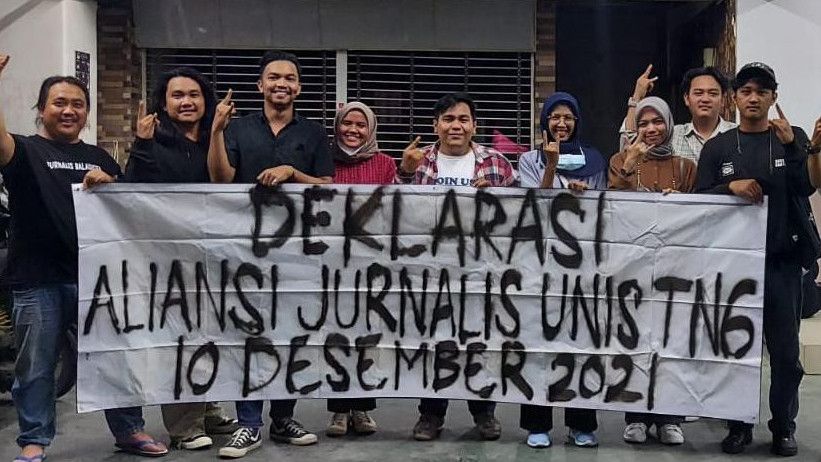 DEKLARASI
ALIANSI JURNALIS UNIS TNG
10 DESEMBER 2021
JOIN US